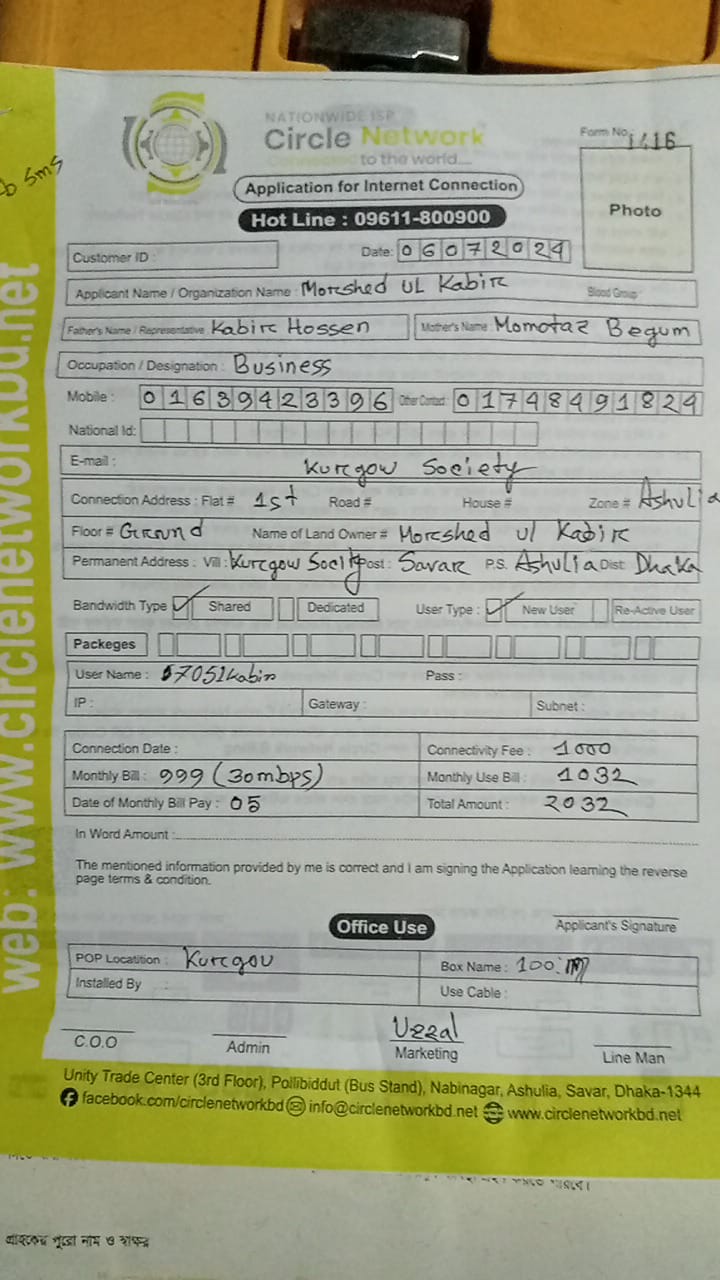 NATIONWIDE ISP
Circle Network
Connected to the world....
Form No. 1416
Application for Internet Connection
Photo
Hot Line : 09611-800900
Customer ID :
Date: 06072024
Applicant Name / Organization Name : Morshed Ul Kabir Blood Group
Father's Name / Representative Kabir Hossen Mother's Name Momotaz Begum
Occupation / Designation : Business
Mobile : 01639423396 Other Contact : 01748491824
National Id:
E-mail : Kurgow Society
Connection Address : Flat # 1st Road # House # Zone # Ashulia
Floor # Ground Name of Land Owner # Morshed ul Kabir
Permanent Address : Vill : Kurgow Socity Post : Savar P.S. Ashulia Dist: Dhaka
Bandwidth Type Shared Dedicated User Type : New User Re-Active User
Packeges
User Name : 57051kabir Pass :
IP : Gateway : Subnet :
Connection Date : Connectivity Fee : 1000
Monthly Bill : 999 (30mbps) Monthly Use Bill : 1032
Date of Monthly Bill Pay : 05 Total Amount : 2032
In Word Amount :
The mentioned information provided by me is correct and I am signing the Application learning the reverse
page terms & condition.
Office Use
Applicant's Signature
POP Locatition : Kurgou Box Name : 100:
Installed By : Use Cable :
C.O.O Admin Uzzal Marketing Line Man
Unity Trade Center (3rd Floor), Pollibiddut (Bus Stand), Nabinagar, Ashulia, Savar, Dhaka-1344
facebook.com/circlenetworkbd info@circlenetworkbd.net www.circlenetworkbd.net
web: www.circlenetworkbd.net
sms
গ্রাহকের পুরো নাম ও স্বাক্ষর